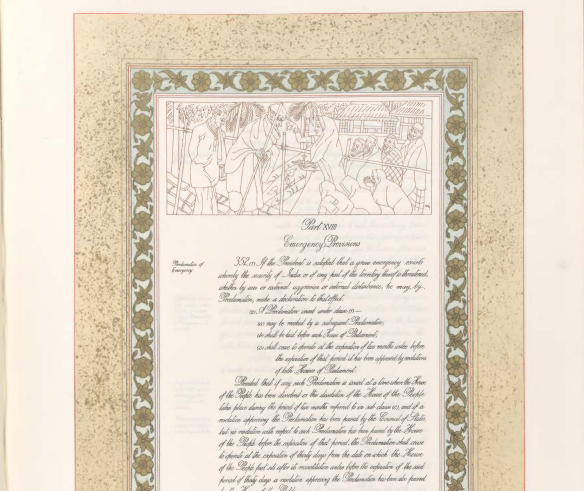 Part XVIII
Emergency Provisions
Proclamation of
Emergency
352. (1). If the President is satisfied that a grave emergency exists
whereby the security of India or of any part of the territory thereof is threatened,
whether by war or external aggression or internal disturbance, he may, by
Proclamation, make a declaration to that effect.
(2). A Proclamation issued under clause (1) —
(a) may be revoked by a subsequent Proclamation;
(b) shall be laid before each House of Parliament;
(c) shall cease to operate at the expiration of two months unless before
the expiration of that period it has been approved by resolutions
of both Houses of Parliament:
Provided that if any such Proclamation is issued at a time when the House
of the People has been dissolved or the dissolution of the House of the People
takes place during the period of two months referred to in sub-clause (c), and if a
resolution approving the Proclamation has been passed by the Council of States,
but no resolution with respect to such Proclamation has been passed by the House
of the People before the expiration of that period, the Proclamation shall cease
to operate at the expiration of thirty days from the date on which the House
of the People first sits after its reconstitution unless before the expiration of the said
period of thirty days a resolution approving the Proclamation has been also passed